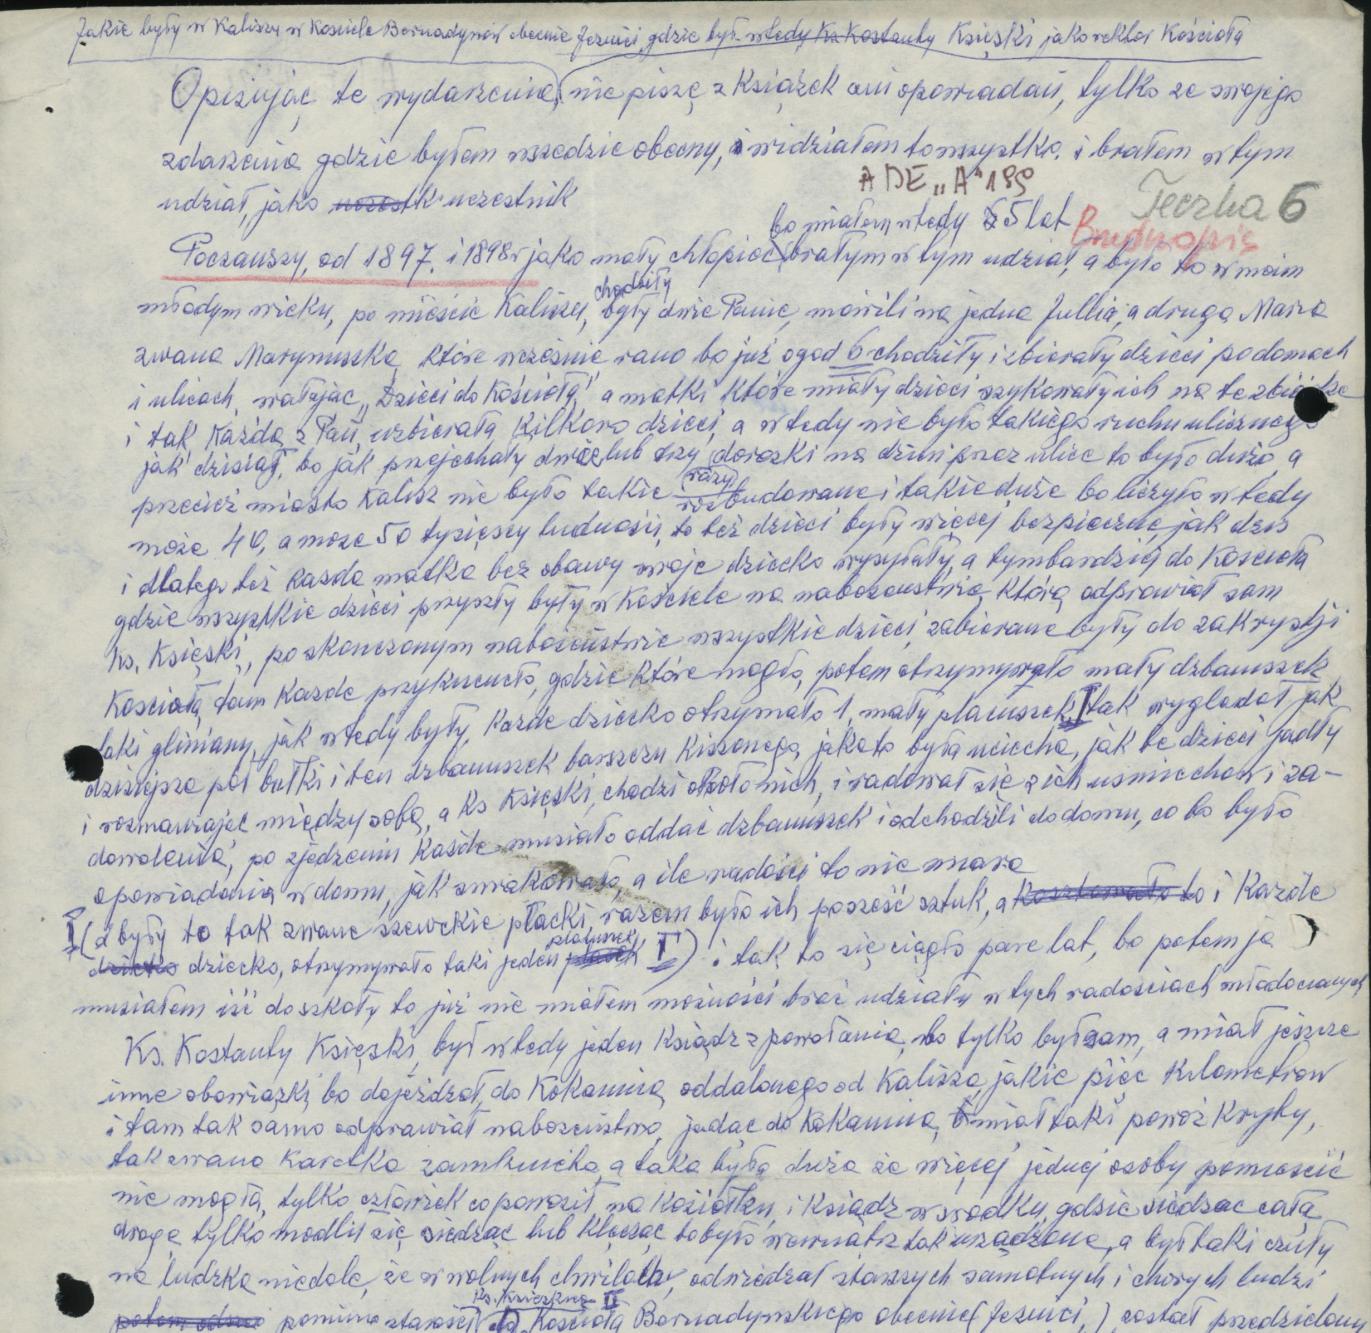 Jakie były w Kaliszu w Kosciele Bernadynów obecnie Jezuici gdzie był wtedy Ks Kostanty Księski jako rektor Kościoła
Opisując te wydarzenia, nie piszę z Książek ani opowiadań, tylko ze swojego
zdarzenia gdzie byłem wszedzie obecny, i widziałem to wszystko, i brałem w tym
udział, jako uczestnik
ADE „A" 189
Teczka 6
bo miałem wtedy 5 lat
Brudnopis
Począwszy, od 1897. i 1898 r jako mały chłopiec brałym w tym udział, a było to w moim
chodziły
młodym wieku, po mieście Kaliszu, były dwie Panie, mówili na jedna Jullia, a druga Maria
zwana Marynuszka, które wcześnie rano bo już o god 6 chodziły, i zbierały dzieci po domach
i ulicach, wałając „Dzieci do Kościoła", a matki które miały dzieci szykowały ich na te zbiórke
i tak Każda z Pań, uzbierała Kilkoro dzieci, a wtedy nie było takiego ruchu ulicznego
jak dzisiaj, bo jak przejechały dwie lub trzy dorożki na dzień przez ulice to było dużo, a
przecież miasto Kalisz nie było takie rozbudowane i takie duże bo liczyło wtedy
może 40, a moze 50 tysięcy ludności, to też dzieci były więcej bezpieczne, jak dziś
i dlatego też każda matka bez obawy swoje dziecko wysyłały, a tymbardziej do Kościoła
gdzie wszystkie dzieci przyszły były w Kościele na nabożeństwie, która odprawiał sam
ks. Księski, po skonczonym nabożeństwie wszystkie dzieci, zabierane były do zakrystji
Kościoła, tam Każde przykucneło, gdzie które mogło, potem otrzymywało mały dzbanuszek
taki gliniany, jak wtedy były, Każde dziecko otrzymało 1, mały placuszek, I tak wyglądał jak
dzisiejsze pół bułki i ten dzbanuszek barszczu Kiszonego, jaka to była uciecha, jak te dzieci jadły
i rozmawiając między sobą, a Ks Księski, chodzi około nich, i radował się z ich uśmiechow i za-
dowolenia, po zjedzeniu Każde musiało oddać dzbanuszek i odchodzili do domu, co to było
opowiadania w domu, jak smakowało, a ile radości to nie miara
I (a były to tak zwane szewckie placki, razem było ich poszość sztuk, a kosztowało to i Każde
placuszek
dziecko, otrzymywało taki jeden I) i tak to się ciągło pare lat, bo potem ja
musiałem iść do szkoły to już nie miałem możności brać udziały w tych radościach młodocianych
Ks. Kostanty Księski, był wtedy jeden Ksiądz z powołania, bo tylko był sam, a miał jeszcze
inne obowiązki bo dojeżdżał, do Kokanina, oddalonego od Kalisza jakie pięć kilometrów
i tam tak samo odprawiał nabożeństwo, jadąc do Kokanina, miał taki powóz Kryty,
tak zwana Karetka zamknięcha, a taka była duża że więcej jednej osoby pomieścić
nie mogła, tylko człowiek co powoził, na Koziołku, i Ksiądz w środku, gdzie siedząc całą
drogę tylko modlił się siedząc lub klęcząc to było wewnątrz tak urządzone, a był taki czuły
na ludzką niedole, że w wolnych chwilach, odwiedzał starszych samotnych i chorych ludzi
Ks. Księskiego II
pomimo starości Kościoła Bernadynskiego obecnie (Jezuici,) został przedzielony